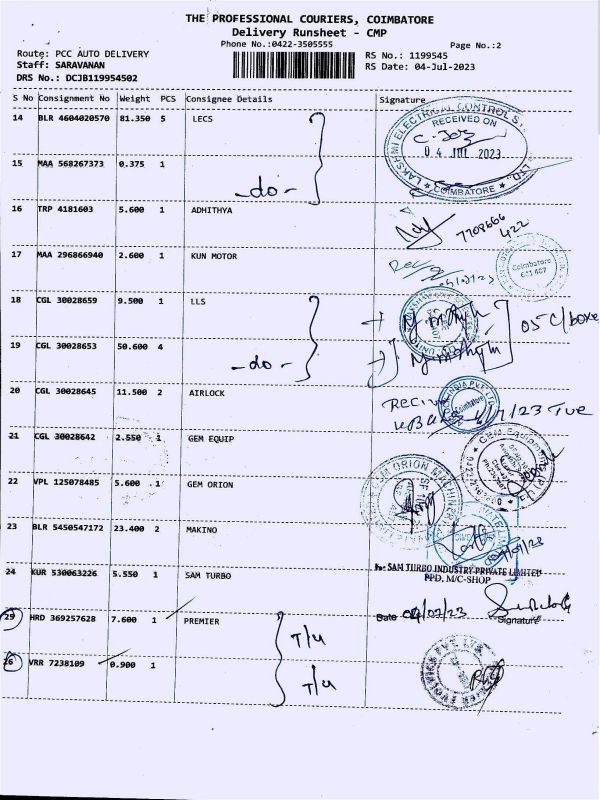 THE PROFESSIONAL COURIERS, COIMBATORE
Delivery Runsheet - CMP
Phone No.:0422-3505555 Page No.:2
Route: PCC AUTO DELIVERY RS No.: 1199545
Staff: SARAVANAN RS Date: 04-Jul-2023
DRS No.: DCJB119954502
S No Consignment No Weight PCS Consignee Details Signature
14 BLR 4604020570 81.350 5 LECS
LAKSHMI ELECTRICAL CONTROL
RECEIVED ON
04 JUL 2023
COIMBATORE
15 MAA 568267373 0.375 1
-do-
16 TRP 4181603 5.600 1 ADHITHYA
7708666
422
17 MAA 296866940 2.600 1 KUN MOTOR
Coimbatore
18 CGL 30028659 9.500 1 LLS
05 C/boxe
19 CGL 30028653 50.600 4
-do-
20 CGL 30028645 11.500 2 AIRLOCK
Coimbatore
/23 Tue
21 CGL 30028642 2.550 1 GEM EQUIP
22 VPL 125078485 5.600 1 GEM ORION
ORION MACHINERY
23 BLR 5450547172 23.400 2 MAKINO
24 KUR 530063226 5.550 1 SAM TURBO
For SAM TURBO INDUSTRY PRIVATE LIMITED
PPD. M/C-SHOP
29 HRD 369257628 7.600 1 PREMIER
T/U
Date 04/07/23
Signature
26 VRR 7238109 0.900 1
T/U